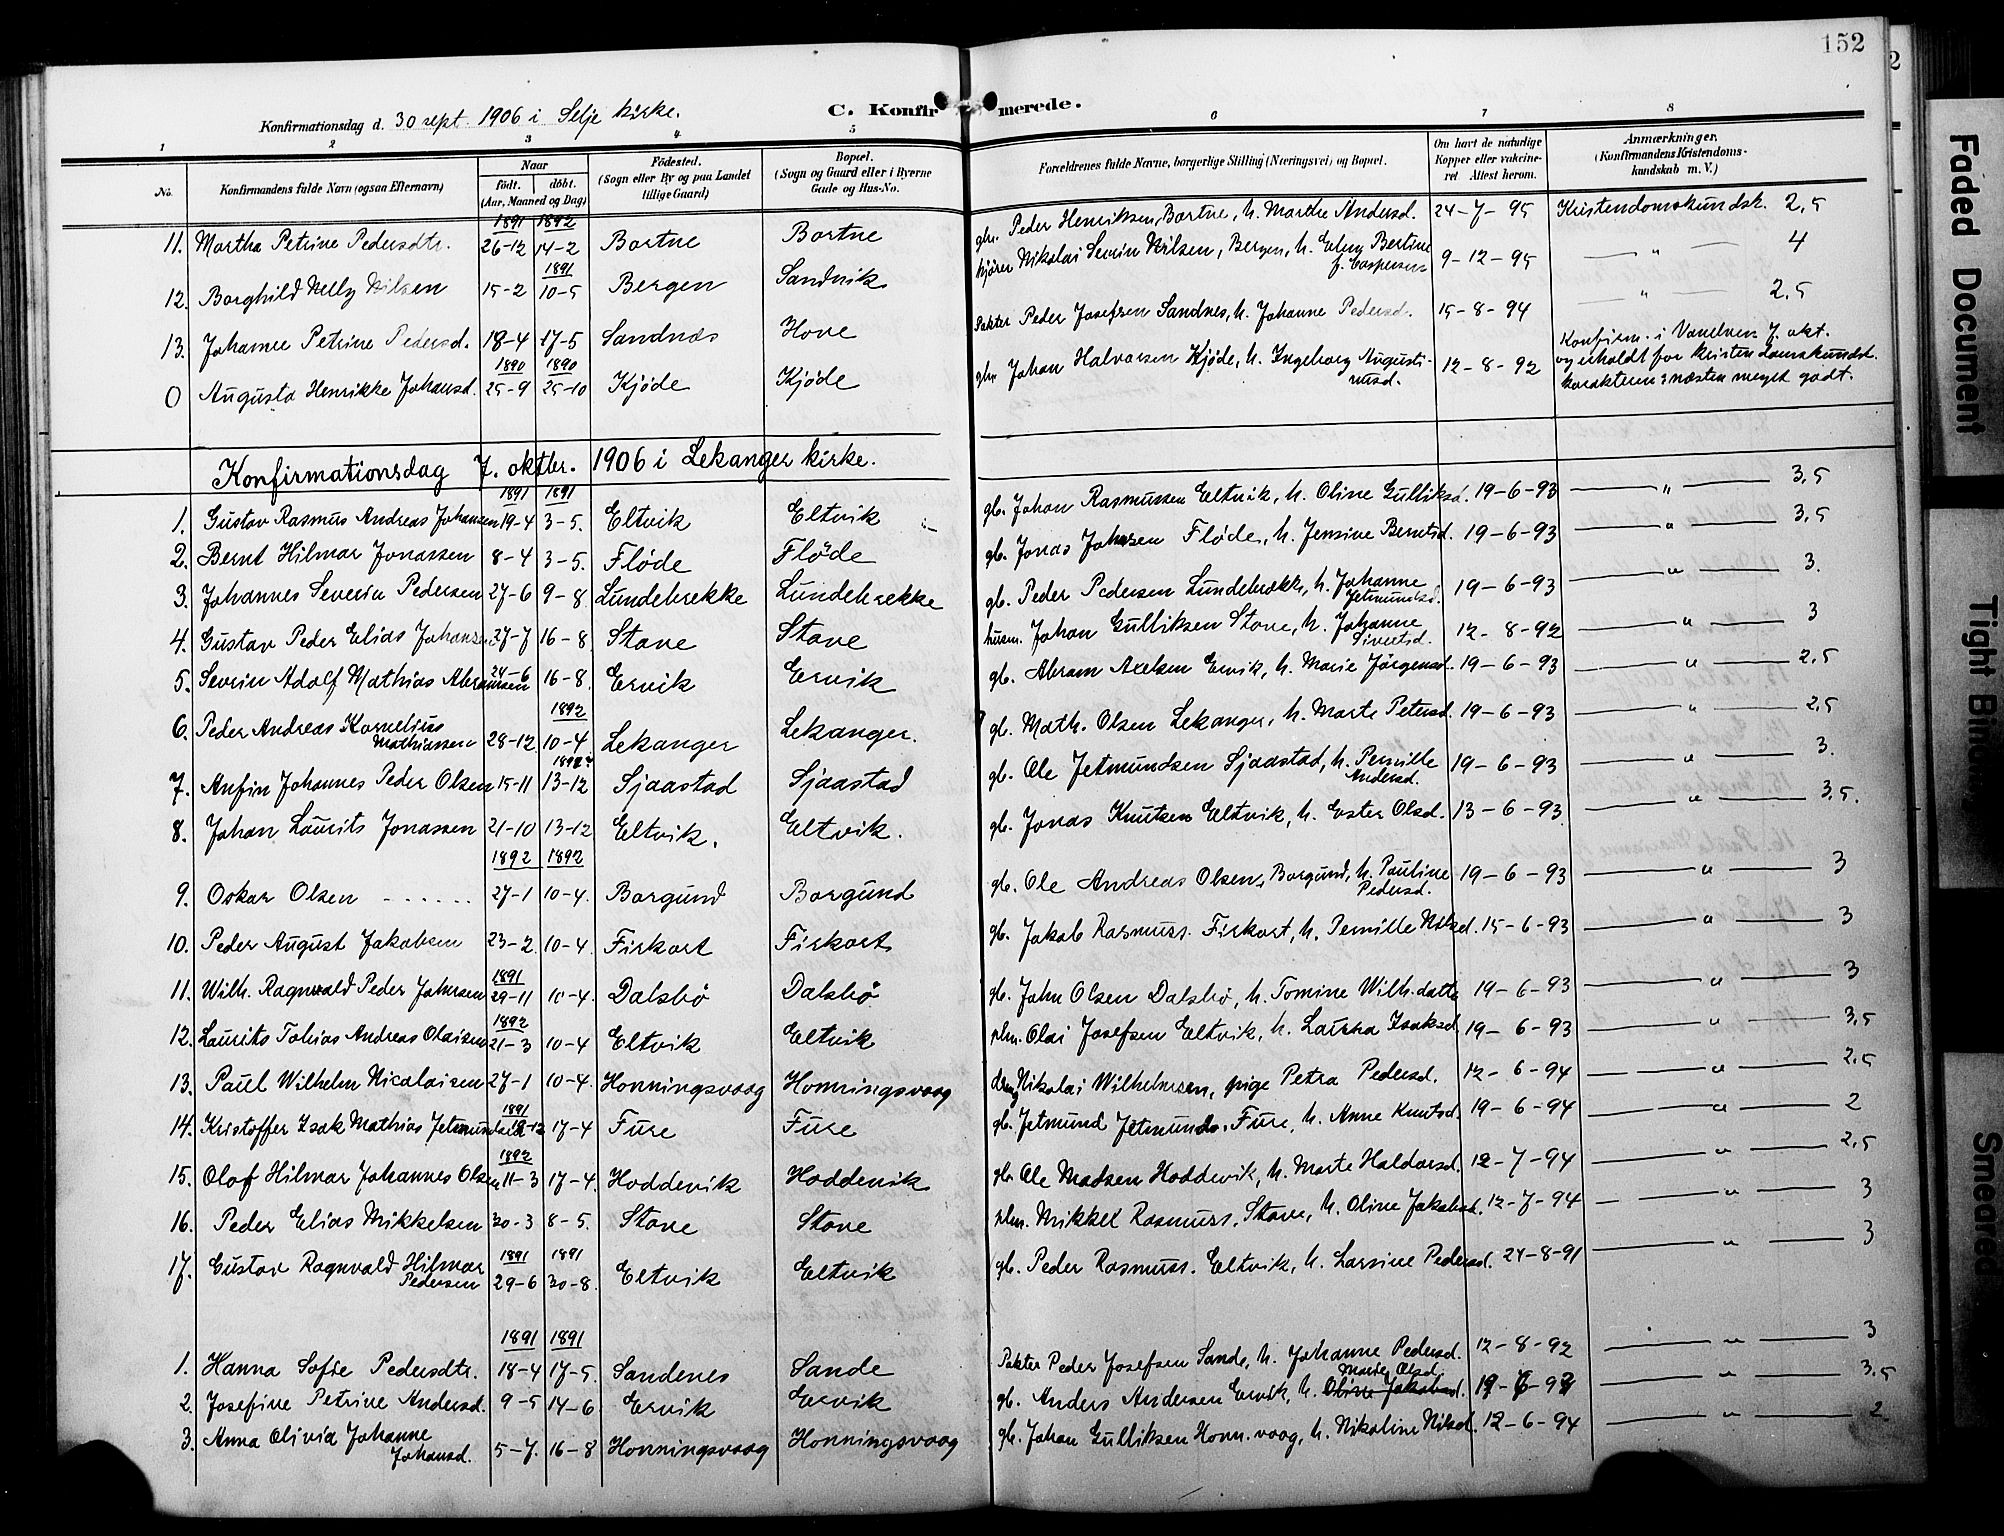 152
C. Konfirmerede.
Konfirmationsdag d. 30 sept. 1906 i Selje kirke.
1 2 3 4 5 6 7 8
No.
Konfirmandens fulde Navn (ogsaa Efternavn)
Naar
født. døbt.
(Aar, Maaned og Dag)
Fødested.
(Sogn eller By og paa Landet tillige Gaard)
Bopæl.
(Sogn og Gaard eller i Byerne Gade og Hus-No.
Forældrenes fulde Navne, borgerlige Stilling (Næringsvei) og Bopæl.
Om havt de naturlige Kopper eller vaccineret Attest herom.
Anmærkninger, (Konfirmandens Kristendomskundskab m. V.)
1891 1892
11. Martha Petrine Pedersdtr. 26-12 14-2 Bortne Bortne gbr. Peder Henriksen, Bortne, h. Marthe Andersd. 24-7-95 Kristendomskundsk. 2,5
1891
12. Borghild Nelly Nilsen 15-2 10-5 Bergen Sandvik kjører Nikolai Severin Nilsen, Bergen, h. Elen Bertine f. Caspersen 9-12-95 — " — 4
13. Johanne Petrine Pedersd. 18-4 17-5 Sandnæs Hove Pakter Peder Josefsen Sandnes, h. Johanne Pedersd. 15-8-94 — " — 2,5
1890 1890
0 Augusta Henrikke Johansd. 25-9 25-10 Kjøde Kjøde gbr Johan Halvorsen Kjøde, h. Ingeborg Augustinusd. 12-8-92 Konfirm. i Vanelven 7. okt. og erholdt for kristendomskundsk. karakteren: næsten meget godt.
Konfirmationsdag 7. oktbr. 1906 i Lekanger kirke.
1891 1891
1. Gustav Rasmus Andreas Johansen 19-4 3-5. Eltvik Eltvik gb. Johan Rasmussen Eltvik, h. Oline Gulliksd. 19-6-93 — " — 3,5
2. Bernt Hilmar Jonassen 8-4 3-5. Fløde Fløde gb. Jonas Johnsen Fløde, h. Jensine Berntsd. 19-6-93 — " — 3,5
3. Johannes Severin Pedersen 27-6 9-8 Lundebrekke Lundebrekke gb. Peder Pedersen Lundebrekke, h. Johanne Jetmundsd. 19-6-93 — " — 3.
4. Gustav Peder Elias Johansen 27-7 16-8 Stave Stave husm. Johan Gulliksen Stave, h. Johanne Sivertsd. 12-8-92 — " — 3
5. Severin Adolf Mathias Abramsen 24-6 16-8 Ervik Ervik gb. Abram Axelsen Ervik, h. Marie Jørgensd. 19-6-93 — " — 2,5
1892
6. Peder Andreas Kornelius Mathiassen 28-12 10-4 Lekanger Lekanger. gb. Math. Olsen Lekanger, h. Marte Petersd. 19-6-93 — " — 2,5
7. Anfin Johannes Peder Olsen 15-11 13-12 Sjaastad Sjaastad gb. Ole Jetmundsen Sjaastad, h. Pernille Andersd. 19-6-93 — " — 3.
8. Johan Laurits Jonassen 21-10 13-12 Eltvik. Eltvik. gb. Jonas Knutsen Eltvik, h. Ester Olsd. 13-6-93 — " — 3,5.
1892 1892
9. Oskar Olsen 27-1 10-4. Borgund Borgund gb. Ole Andreas Olsen, Borgund, h. Pauline Pedersd. 19-6-93 — " — 3
10. Peder August Jakobsen 23-2 10-4. Fiskort Fiskort gb. Jakob Rasmuss. Fiskort, h. Pernille Nilsd. 15-6-93 — " — 3
1891
11. Wilh. Ragnvald Peder Johnsen 29-11 10-4. Dalsbø Dalsbø gb. John Olsen Dalsbø, h. Tomine Wilh.datter 19-6-93 — " — 3
1892
12. Laurits Tobias Andreas Olaisen 21-3 10-4 Eltvik Eltvik slm. Olai Josefsen Eltvik, h. Laura Isaksd 19-6-93 — " — 3,5
13. Paul Wilhelm Nicolaisen 27-1 10-4. Honningsvaag Honningsvaag dreng Nikolai Wilhelmsen, pige Petra Pedersd. 12-6-94 — " — 2,5
1891
14. Kristoffer Isak Mathias Jetmundsen 18-12 17-4 Fure Fure gb. Jetmund Jetmunds. Fure, h. Anne Knutsd. 19-6-94 — " — 2
1892
15. Olaf Hilmar Johannes Olsen 11-3 17-4. Hoddevik Hoddevik gb Ole Madsen Hoddevik, h. Marte Haldorsd. 12-7-94 — " — 2,5
16. Peder Elias Mikkelsen 30-3 8-5. Stave Stave slm. Mikkel Rasmuss. Stave, h. Oline Jakobsd. 12-7-94 — " — 3
1891 1891
17. Gustav Ragnvald Hilmar Pedersen 29-6 30-8 Eltvik Eltvik gb. Peder Rasmuss. Eltvik, h. Larsine Pedersd. 24-8-91 — " — 3
1891 1891
1. Hanna Sofie Pedersdtr. 18-4 17-5. Sandenes Sande Pakter Peder Josefsen Sande, h. Johanne Pedersd. 12-8-92 — " — 3
2. Josefine Petrine Andersd. 9-5 14-6 Ervik Ervik gb. Anders Andersen Ervik, h. Oline Jakobsd. Marie Olsd. — " — 3,5
3. Anna Olivia Johanne Johansd. 5-7. 16-8 Honningsvaag Honningsvaag gb. Johan Gulliksen Honn.vaag, h. Nikoline Nilsd. 12-6-94 — " — 2.
Faded Document
Tight Binding
Smeared